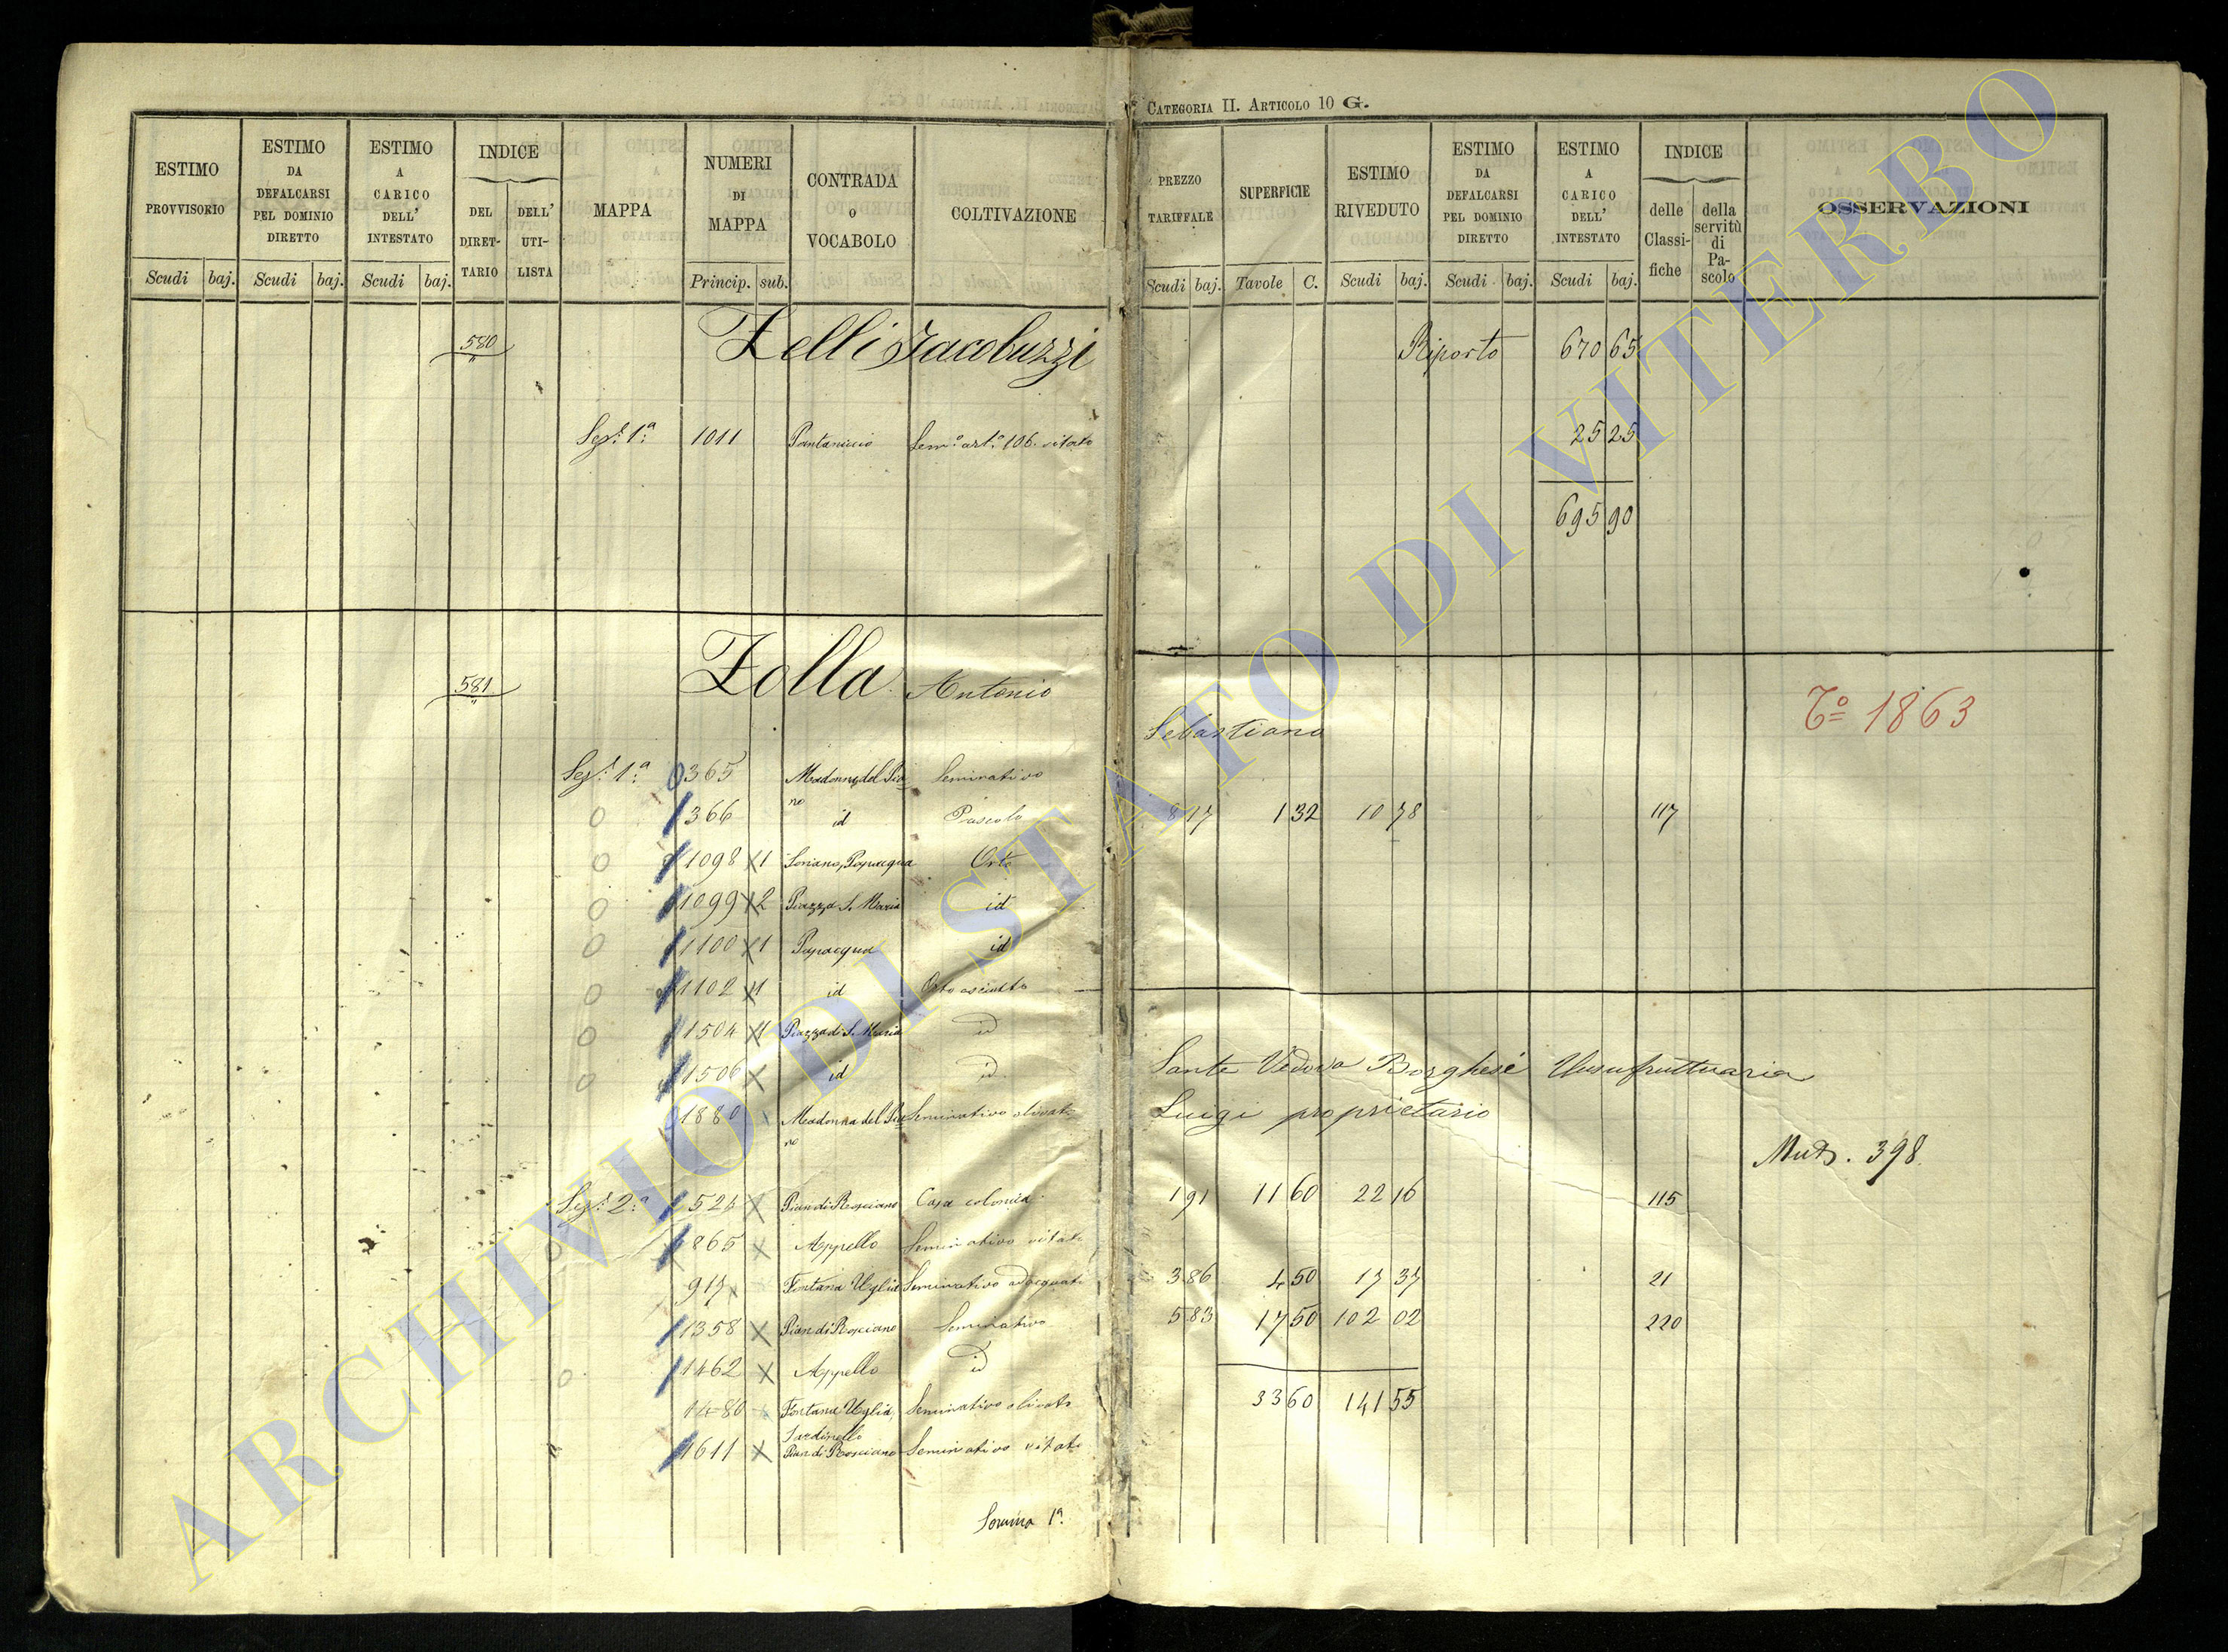 CATEGORIA II. ARTICOLO 10 G.
ESTIMO PROVVISORIO Scudi baj.
ESTIMO DA DEFALCARSI PEL DOMINIO DIRETTO Scudi baj.
ESTIMO A CARICO DELL' INTESTATO Scudi baj.
INDICE DEL DIRET-TARIO DELL' UTI-LISTA
MAPPA
NUMERI DI MAPPA Princip. sub.
CONTRADA o VOCABOLO
COLTIVAZIONE
580 Zelli Jacobuzzi
Sez.e 1a 1011 Pantaniccio Sem.o art.o 106. vitato
581 Zolla Antonio
Sez.e 1a 365 Madonna del Pia=no Seminativo
366 id Pascolo
1098 1 Soriano, Papacqua Orto
1099 2 Piazza S. Maria id
1100 1 Papacqua id
1102 1 id Orto asciutto
1504 1 Piazza di S. Maria id
1506 id id
1880 Madonna del Pia=no Seminativo olivato
Sez.e 2a 524 Pian di Rosciano Casa colonica
865 Appello Seminativo vitato
917 Fontana Uglia Seminativo adacquato
1358 Pian di Rosciano Seminativo
1462 Appello id
1480 Fontana Uglia, Sardinello Seminativo olivato
1611 Pian di Rosciano Seminativo vitato
Somma 1a
PREZZO TARIFFALE Scudi baj.
SUPERFICIE Tavole C.
ESTIMO RIVEDUTO Scudi baj.
ESTIMO DA DEFALCARSI PEL DOMINIO DIRETTO Scudi baj.
ESTIMO A CARICO DELL' INTESTATO Scudi baj.
INDICE delle Classi-fiche della servitù di Pa-scolo
OSSERVAZIONI
Riporto 670 65
25 25
695 90
To 1863
Sebastiano
8 17 1 32 10 78 117
Sante Vedova Borghesé Ususufruttuaria
Luigi proprietario
Mut. 398
1 91 11 60 22 16 115
3 86 4 50 17 37 21
5 83 17 50 102 02 220
33 60 141 55
ARCHIVIO DI STATO DI VITERBO